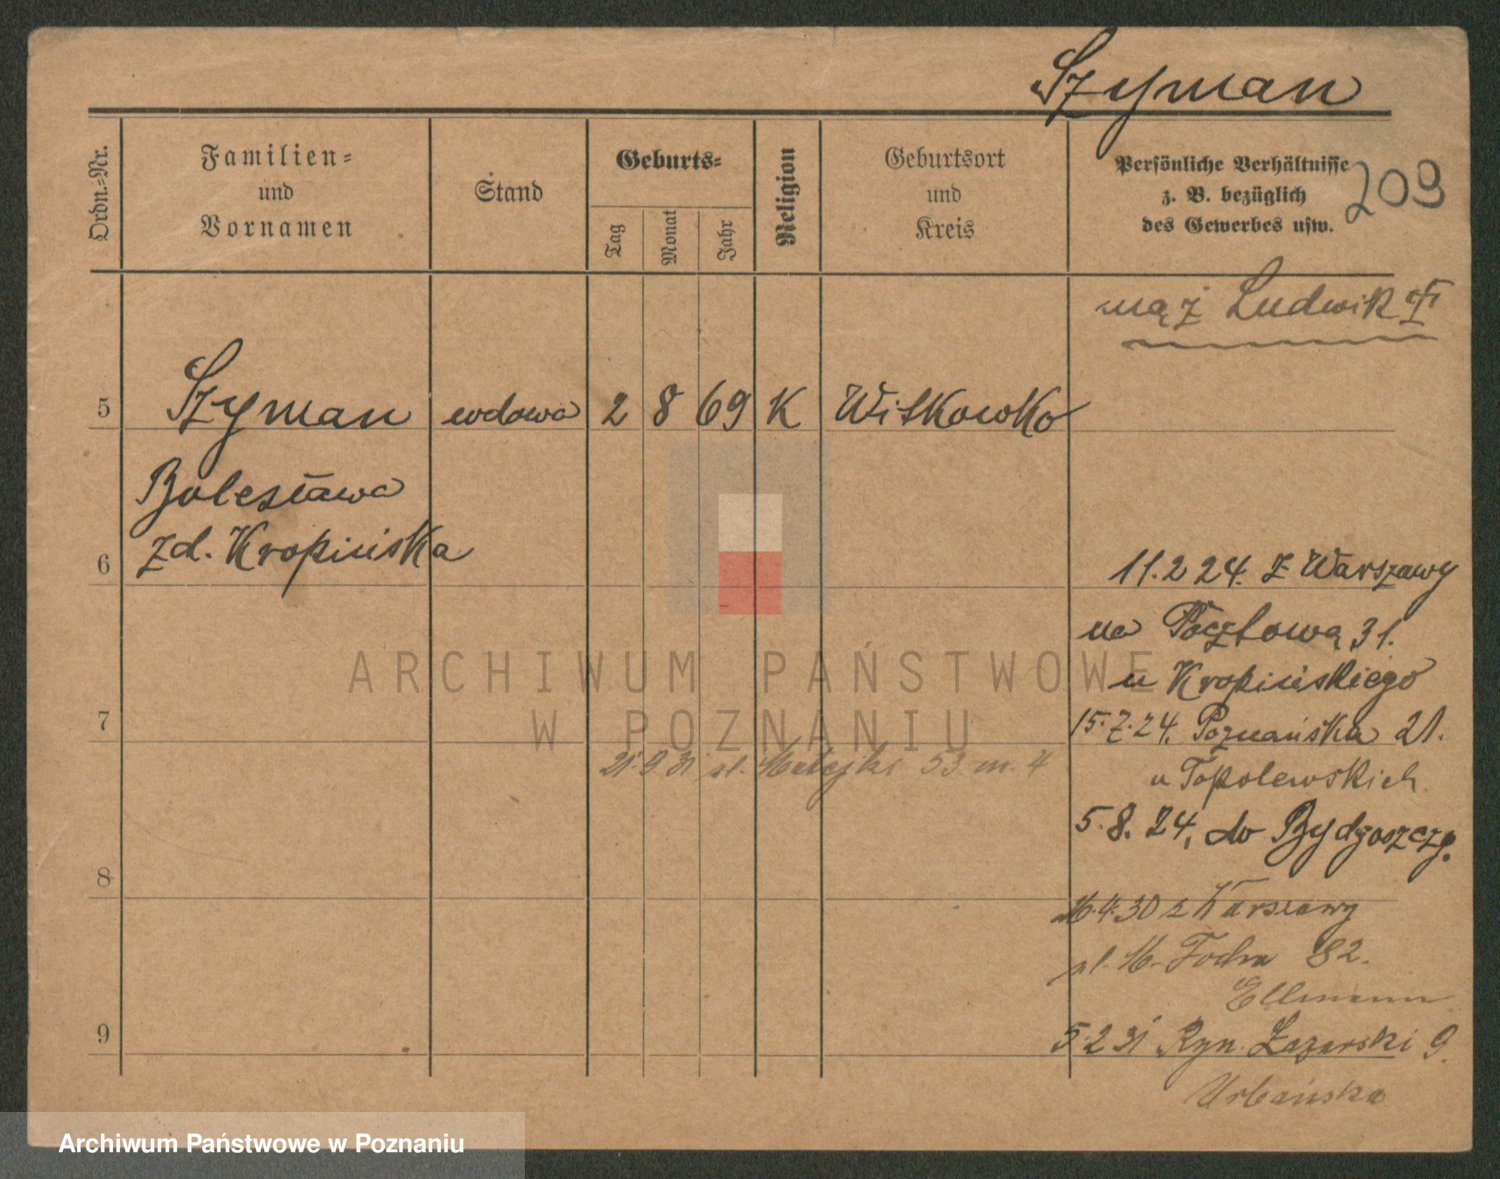 Szyman
209
Ordn.-Nr.
Familien-
und
Vornamen
Stand
Geburts-
Tag
Monat
Jahr
Religion
Geburtsort
und
Kreis
Persönliche Verhältnisse
z. B. bezüglich
des Gewerbes usw.
mąż Ludwik
5 Szyman wdowa 2 8 69 K Witkowko
Bolesława
6 zd. Kropińska
11.2 24. z Warszawy
na Pocztową 31.
u Kropińskiego
7
15.7.24. Poznańska 21.
u Topolewskich
21.9.31 ul. Matejki 53 m. 4
5.8.24. do Bydgoszczy.
8
16.4.30 z Warszawy
ul. M. Focha 82.
Ellmann
9
5.2 31 Ryn. Łazarski 9.
Urbańska
ARCHIWUM PAŃSTWOWE
W POZNANIU
Archiwum Państwowe w Poznaniu